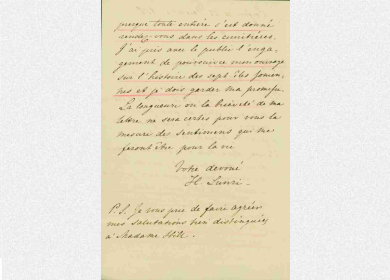 presque toute entière s'est donné
rendez-vous dans les cimetières.
J'ai pris avec le public l'enga-
gement de poursuivre mon ouvrage
sur l'histoire des sept îles Ionien-
nes et je dois garder ma promesse.
La longueur ou la brièveté de ma
lettre ne sera certes pour vous la
mesure des sentimens qui me
feront être pour la vie
Votre dévoué
H. Lunzi
P.S. Je vous prie de faire agréer
mes salutations bien distinguées
à Madame Hill.